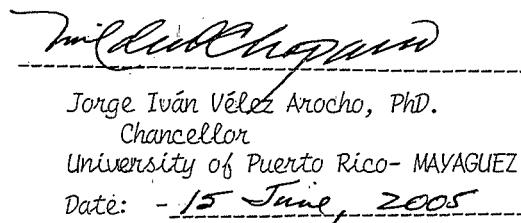 Jorge Iván Vélez Arocho, PhD.
Chancellor
University of Puerto Rico- MAYAGUEZ
Date: - 15 June, 2005